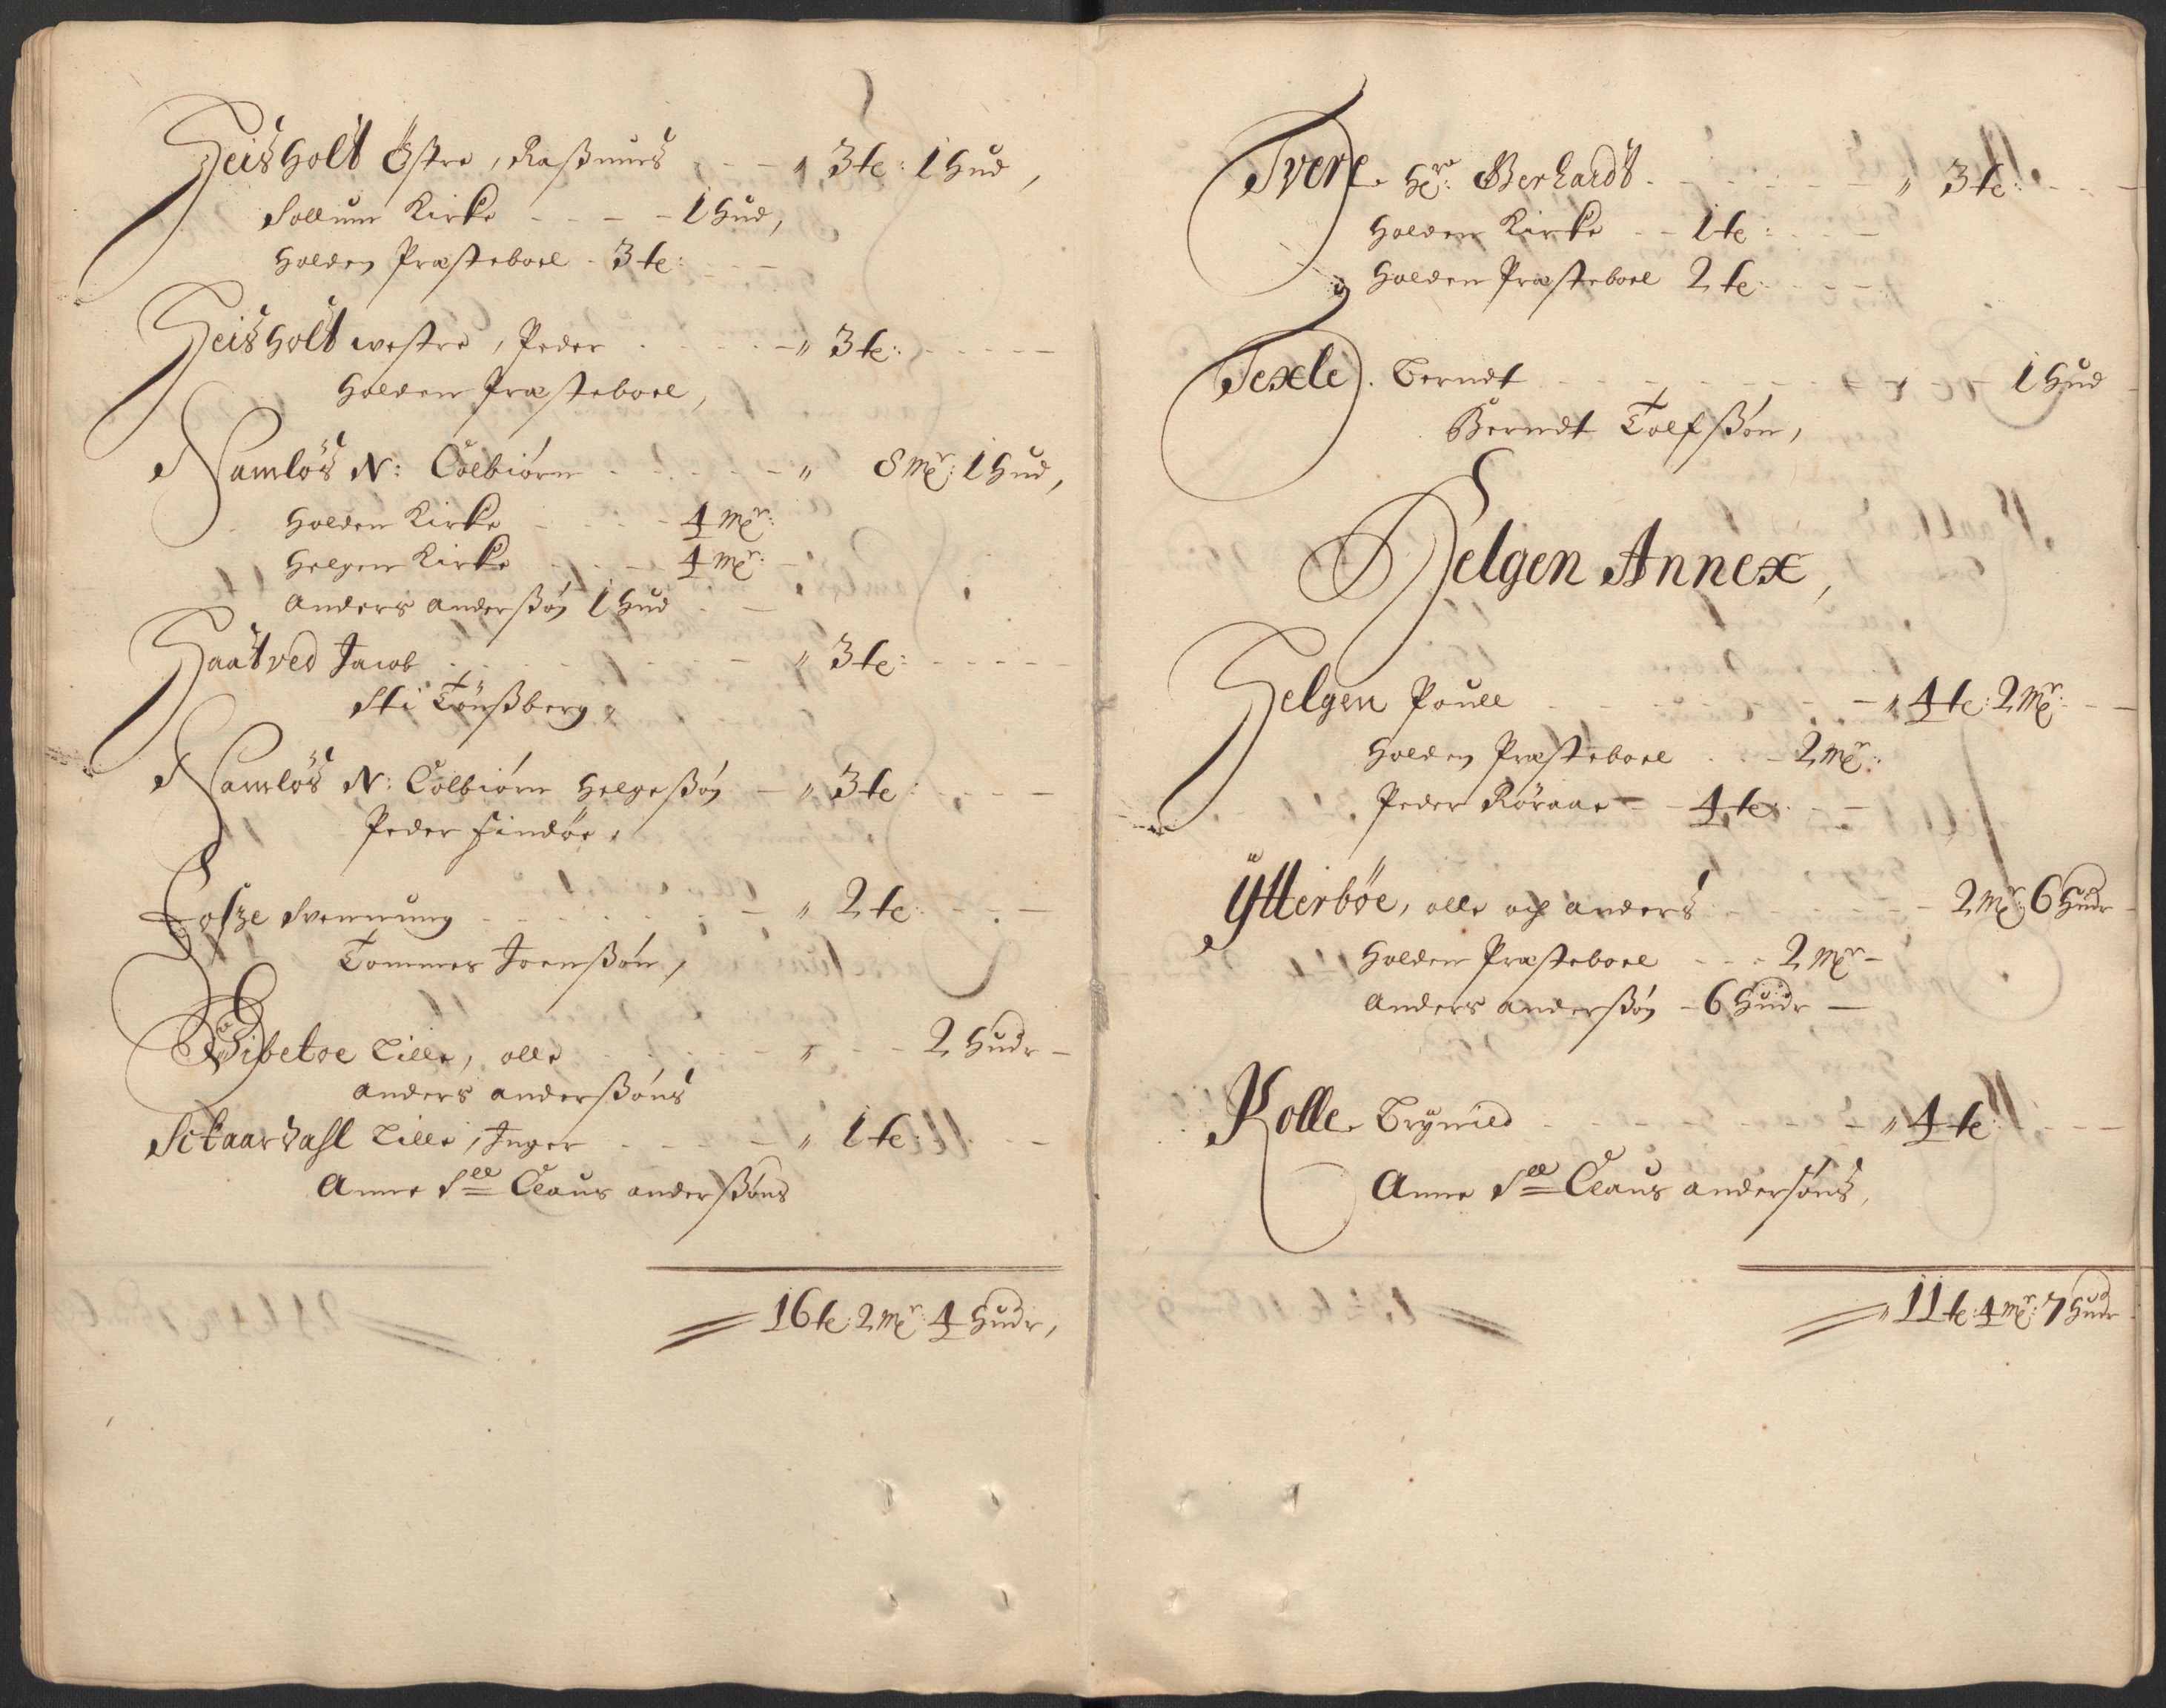 Geisholt Östre, Rasmus - - " 3 te: 1 Hud,
Sollum Kirke - - - - 1 Hud,
Holden Præsteboel - 3 te:
Geisholt westre, Peder - - - " 3 te:
Holden Præsteboel,
Namløs N: Colbiørn - - - " 8 mr: 1 Hud,
Holden Kirke - - - 4 mr:
Helgen Kirke - - - 4 mr:
Anders Anderßøn 1 Hud
Haatved Jacob - - - " 3 te:
Sti Tønßberg
Namløs N: Colbiørn Helgeßøn - " 3 te:
Peder Findøe,
Svennung - - - " 2 te:
Tommes Joenßøn,
Sibetoe Lille, olle - - - " - - 2 Hudr -
Anders Anderßøns
Schaardahl Lille, Inger - - - " 1 te:
Anne Sll Claus anderßøns
16 te: 2 mr: 4 Hudr,
Tvere Hr: Berhardt - - - " 3 te:
Holden Kirke - - 1 te:
Holden Præsteboel 2 te:
Texle. Berndt - - - 1 Hud
Berndt Tolfßøn,
Helgen Annex,
Helgen Poull - - - " 4 te: 2 mr:
Holden Præsteboel - - 2 mr:
Peder Røraae - - 4 te:
Ytterbøe, olle och anders - - - 2 mr: 6 Hudr
Holden Præsteboel - - - 2 mr -
Anders Anderßøn - 6 Hudr -
Kolle Brynild - - - " 4 te:
Anne Sll Claus andersøns,
" 11 te: 4 mr: 7 Hudr